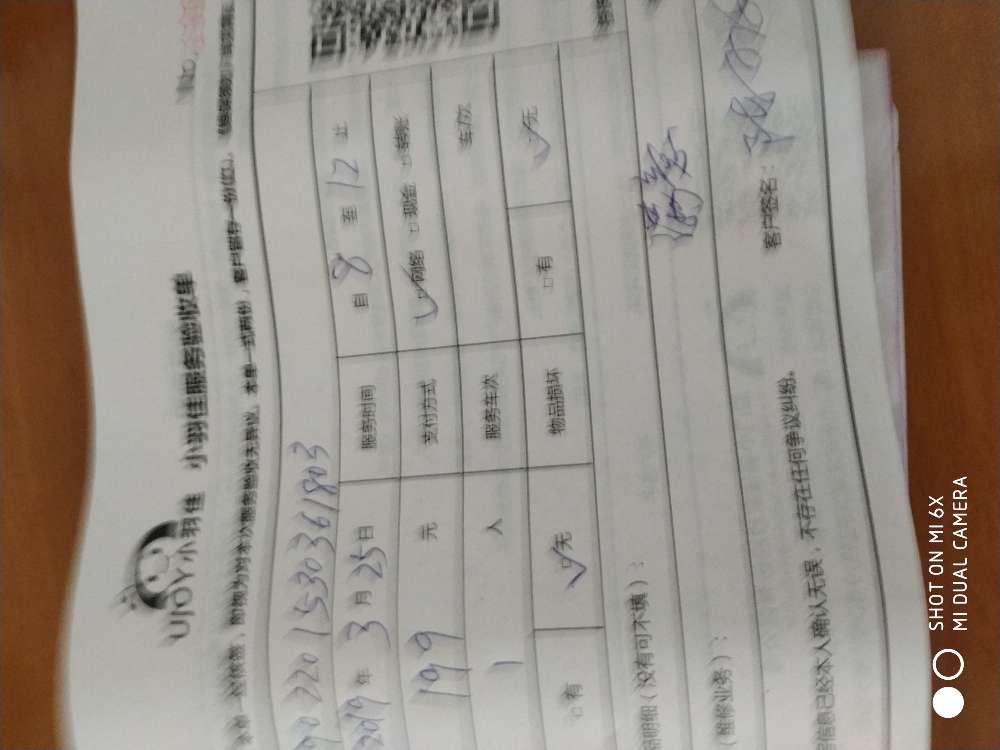 No.
UJOY小羽佳 小羽佳服务验收单
本单一经签署，即视为对本次服务验收无异议。本单一式两份，客户留存一份(红)，
90 220 1530361803
2019年 3月25日 服务时间 自 8 至 12 止
199 元 支付方式 ☑网络 □现金 □转账
1 人 服务车次 车/次
□有 ☑无 物品损坏 □有 ☑无
品明细（没有可不填）：
（维修业务）：
客户签名：
信息已经本人确认无误，不存在任何争议纠纷。
SHOT ON MI 6X
MI DUAL CAMERA